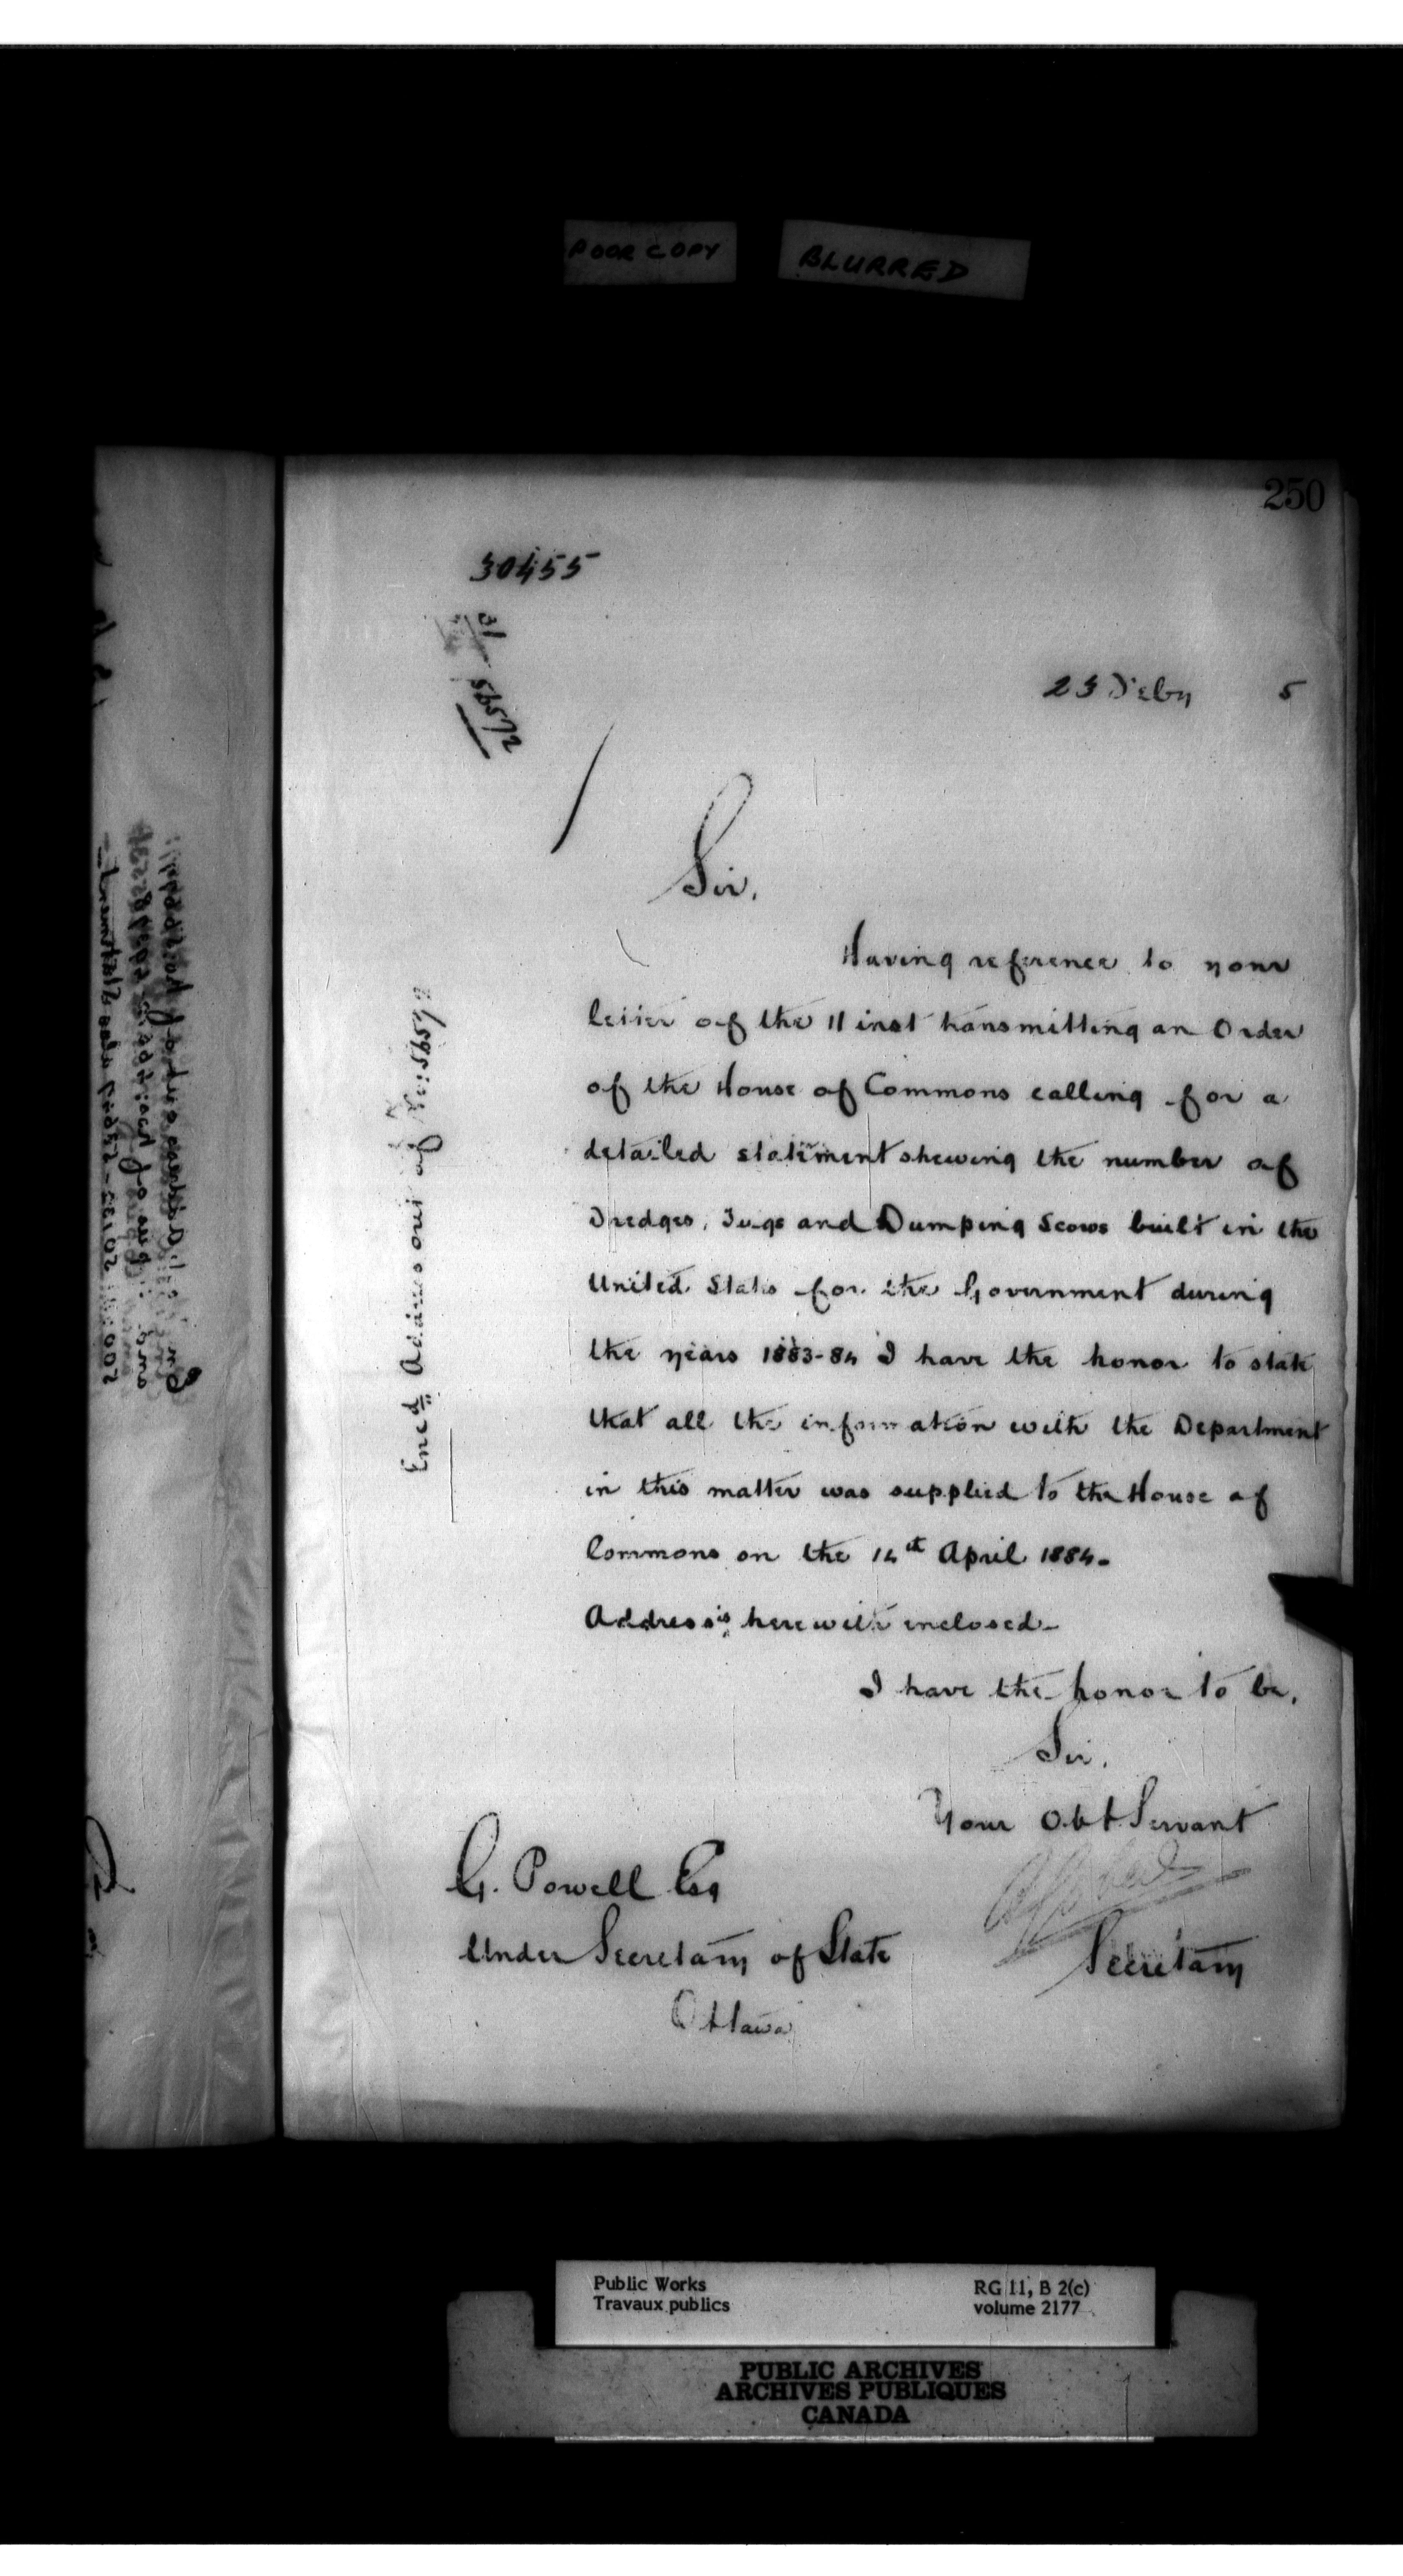 POOR COPY BLURRED
250
30455
56572
23 Feby 5
Sir,
Having reference to your
letter of the 11 inst transmitting an Order
of the House of Commons calling for a
detailed statement shewing the number of
Dredges, Tugs and Dumping Scows built in the
United States for the Government during
the years 1883-84 I have the honor to state
that all the information with the Department
in this matter was supplied to the House of
Commons on the 14th April 1884.
Address is herewith enclosed.
I have the honor to be,
Sir,
Your Obt Servant
Secretary
G. Powell Esq
Under Secretary of State
Ottawa
Encd Address out of No: 56572
Public Works
Travaux publics
RG 11, B 2(c)
volume 2177
PUBLIC ARCHIVES
ARCHIVES PUBLIQUES
CANADA